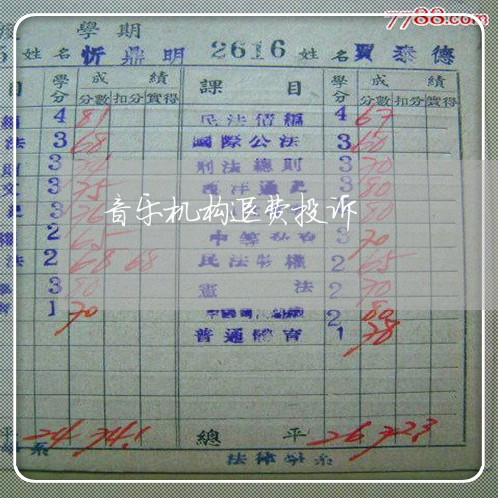 7788.com
學期
姓名 忻鼎明 2616 姓名 賈泰德
目 學分 成績 課目 學分 成績
分數 扣分 實得 分數 扣分 實得
4 81 民法債編 4 67
法 3 68 國際公法 3 60
3 刑法總則 3 70
3 75 西洋通史 3 80
3 3 80
音乐机构退费投诉
2 65 3 70
法 2 68 68 民法物權 2 65
3 80 憲法 2 70
1 70 2 80
普通體育 1 78
平 24 74.1 總平 26 72.3
系 法律學系